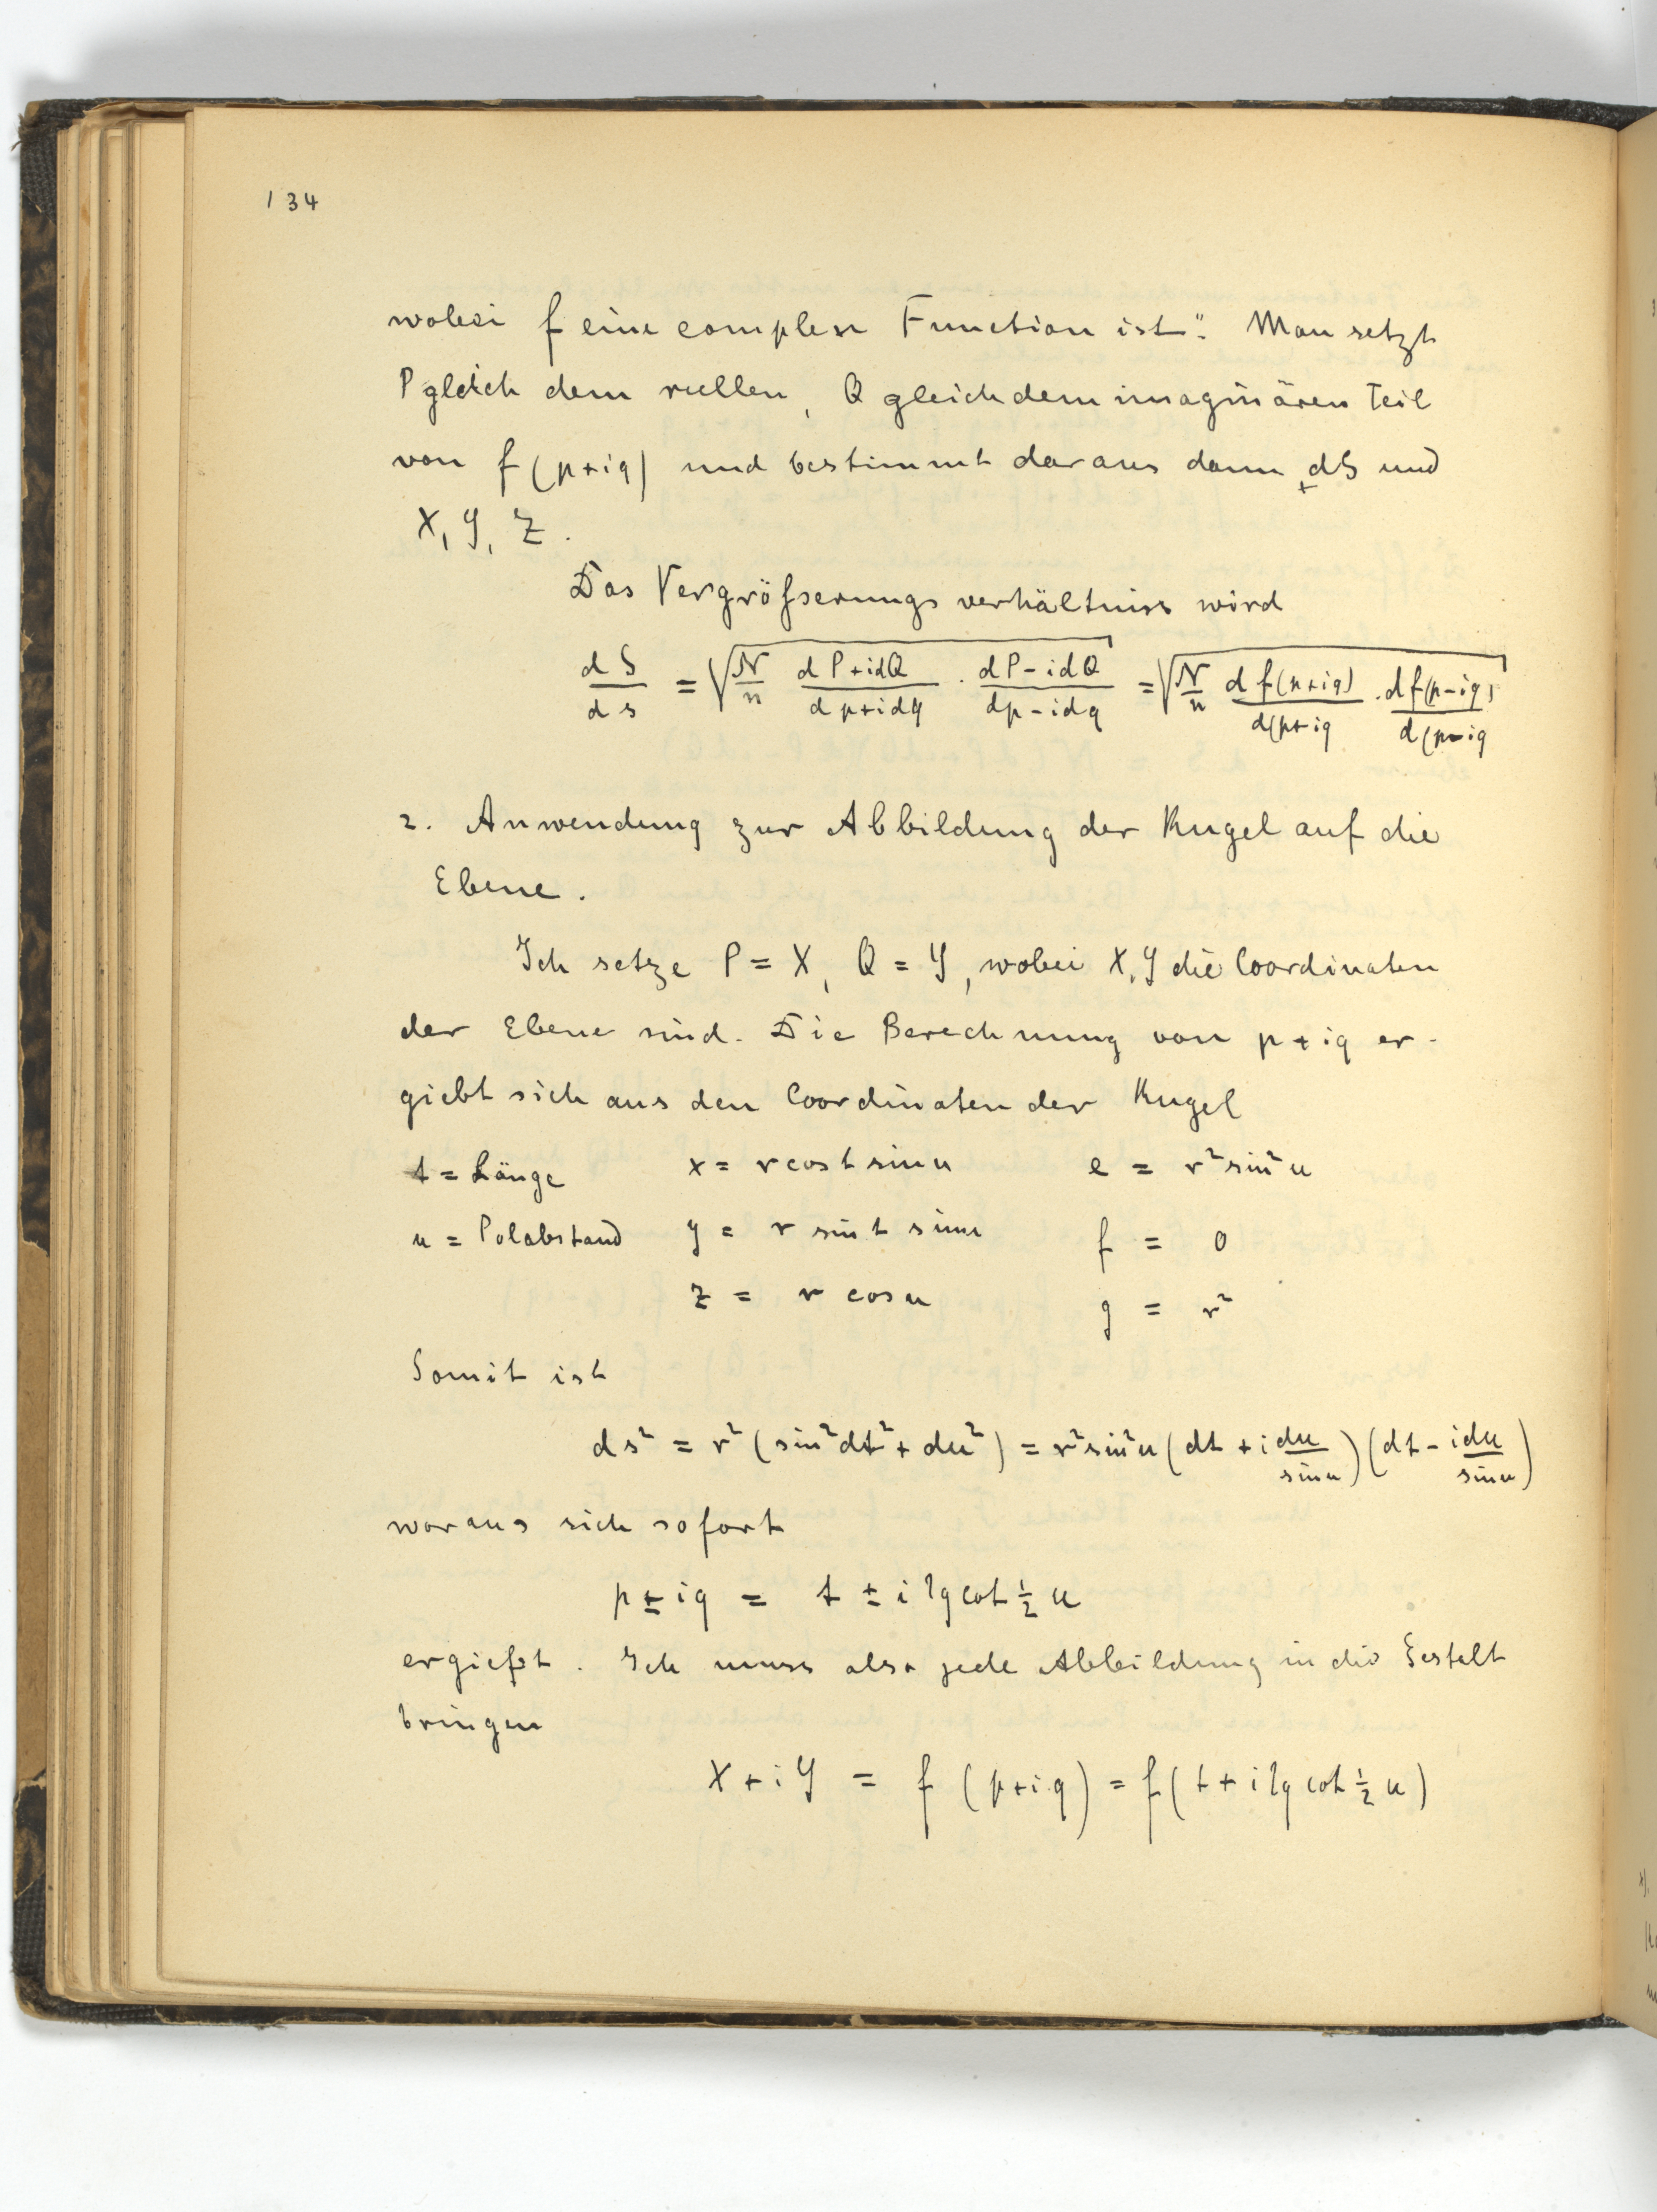 134
wobei f eine complexe Function ist". Man setzt
P gleich dem reellen, Q gleich dem imaginären Teil
von f(p+iq) und bestimmt daraus dann dS und
X, Y, Z.
Das Vergrößerungsverhältniss wird
dS/ds = √(N/n (dP+idQ)/(dp+idq) · (dP-idQ)/(dp-idq)) = √(N/n df(p+iq)/d(p+iq · df(p-iq)/d(p-iq)
2. Anwendung zur Abbildung der Kugel auf die
Ebene.
Ich setze P = X, Q = Y, wobei X, Y die Coordinaten
der Ebene sind. Die Berechnung von p+iq er-
giebt sich aus den Coordinaten der Kugel
t = Länge x = r cos t sin u e = r² sin² u
u = Polabstand y = r sin t sin u f = 0
z = r cos u g = r²
Somit ist
ds² = r² (sin² dt² + du²) = r² sin² u (dt + i du/sin u)(dt - i du/sin u)
woraus sich sofort
p ± iq = t ± i lg cot ½ u
ergiebt. Ich muss also jede Abbildung in die Gestalt
bringen
X + iY = f (p+iq) = f(t + i lg cot ½ u)